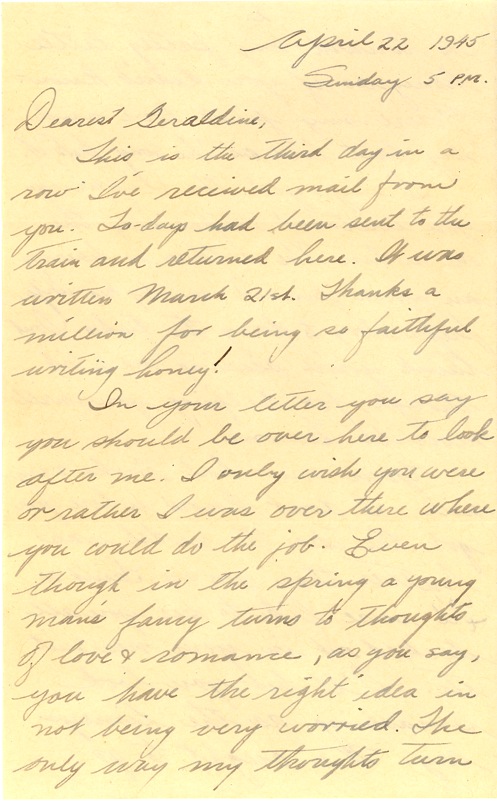 April 22 1945
Sunday 5 P.M.
Dearest Geraldine,
This is the third day in a
row I've received mail from
you. To-days had been sent to the
train and returned here. It was
written March 21st. Thanks a
million for being so faithful
writing honey!
In your letter you say
you should be over here to look
after me. I only wish you were
or rather I was over there where
you could do the job. Even
though in the spring a young
man's fancy turns to thoughts
of love & romance, as you say,
you have the right idea in
not being very worried. The
only way my thoughts turn